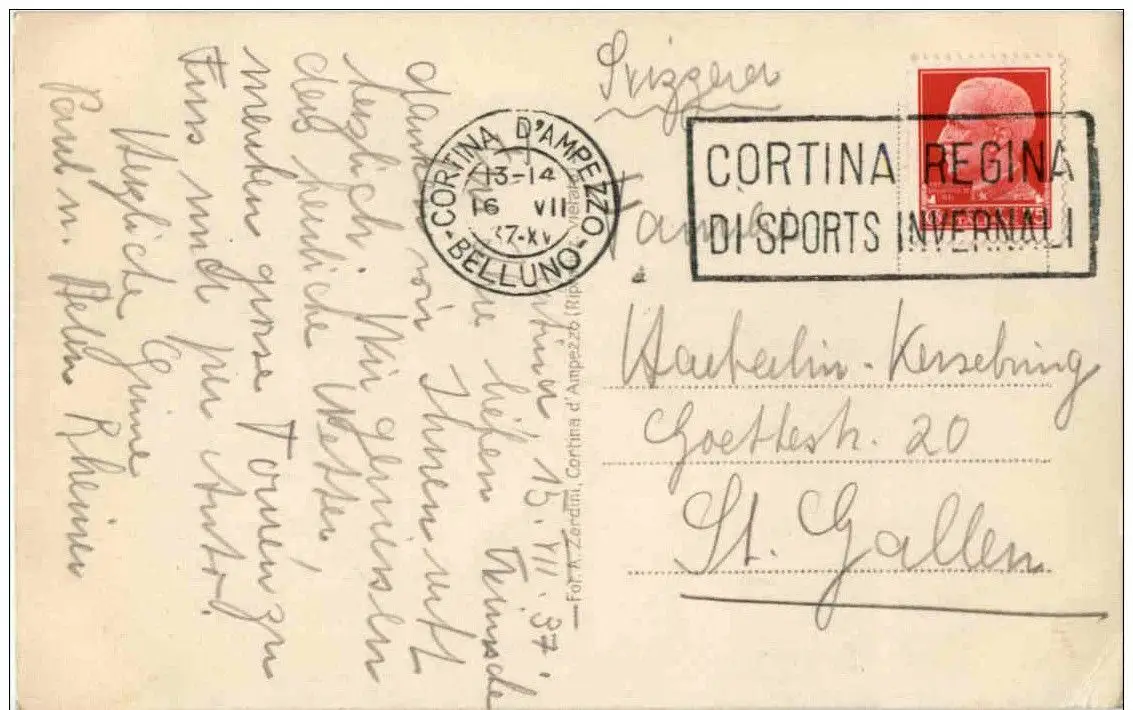 Cortina 15.VII.37.
Für Ihre lieben Wünsche
danken wir Ihnen recht
herzlich. Wir geniessen
das herrliche Wetter,
machen grosse Touren zu
Fuss und per Auto!
Herzliche Grüsse
Paul u. Rheiner
CORTINA D'AMPEZZO
13-14
16 VII
37-XV
-BELLUNO-
Fot. A. Zardini, Cortina d'Ampezzo
Svizzera
CORTINA REGINA
DI SPORTS INVERNALI
Familie
Haeberlin-Kersebring
Goethestr. 20
St. Gallen